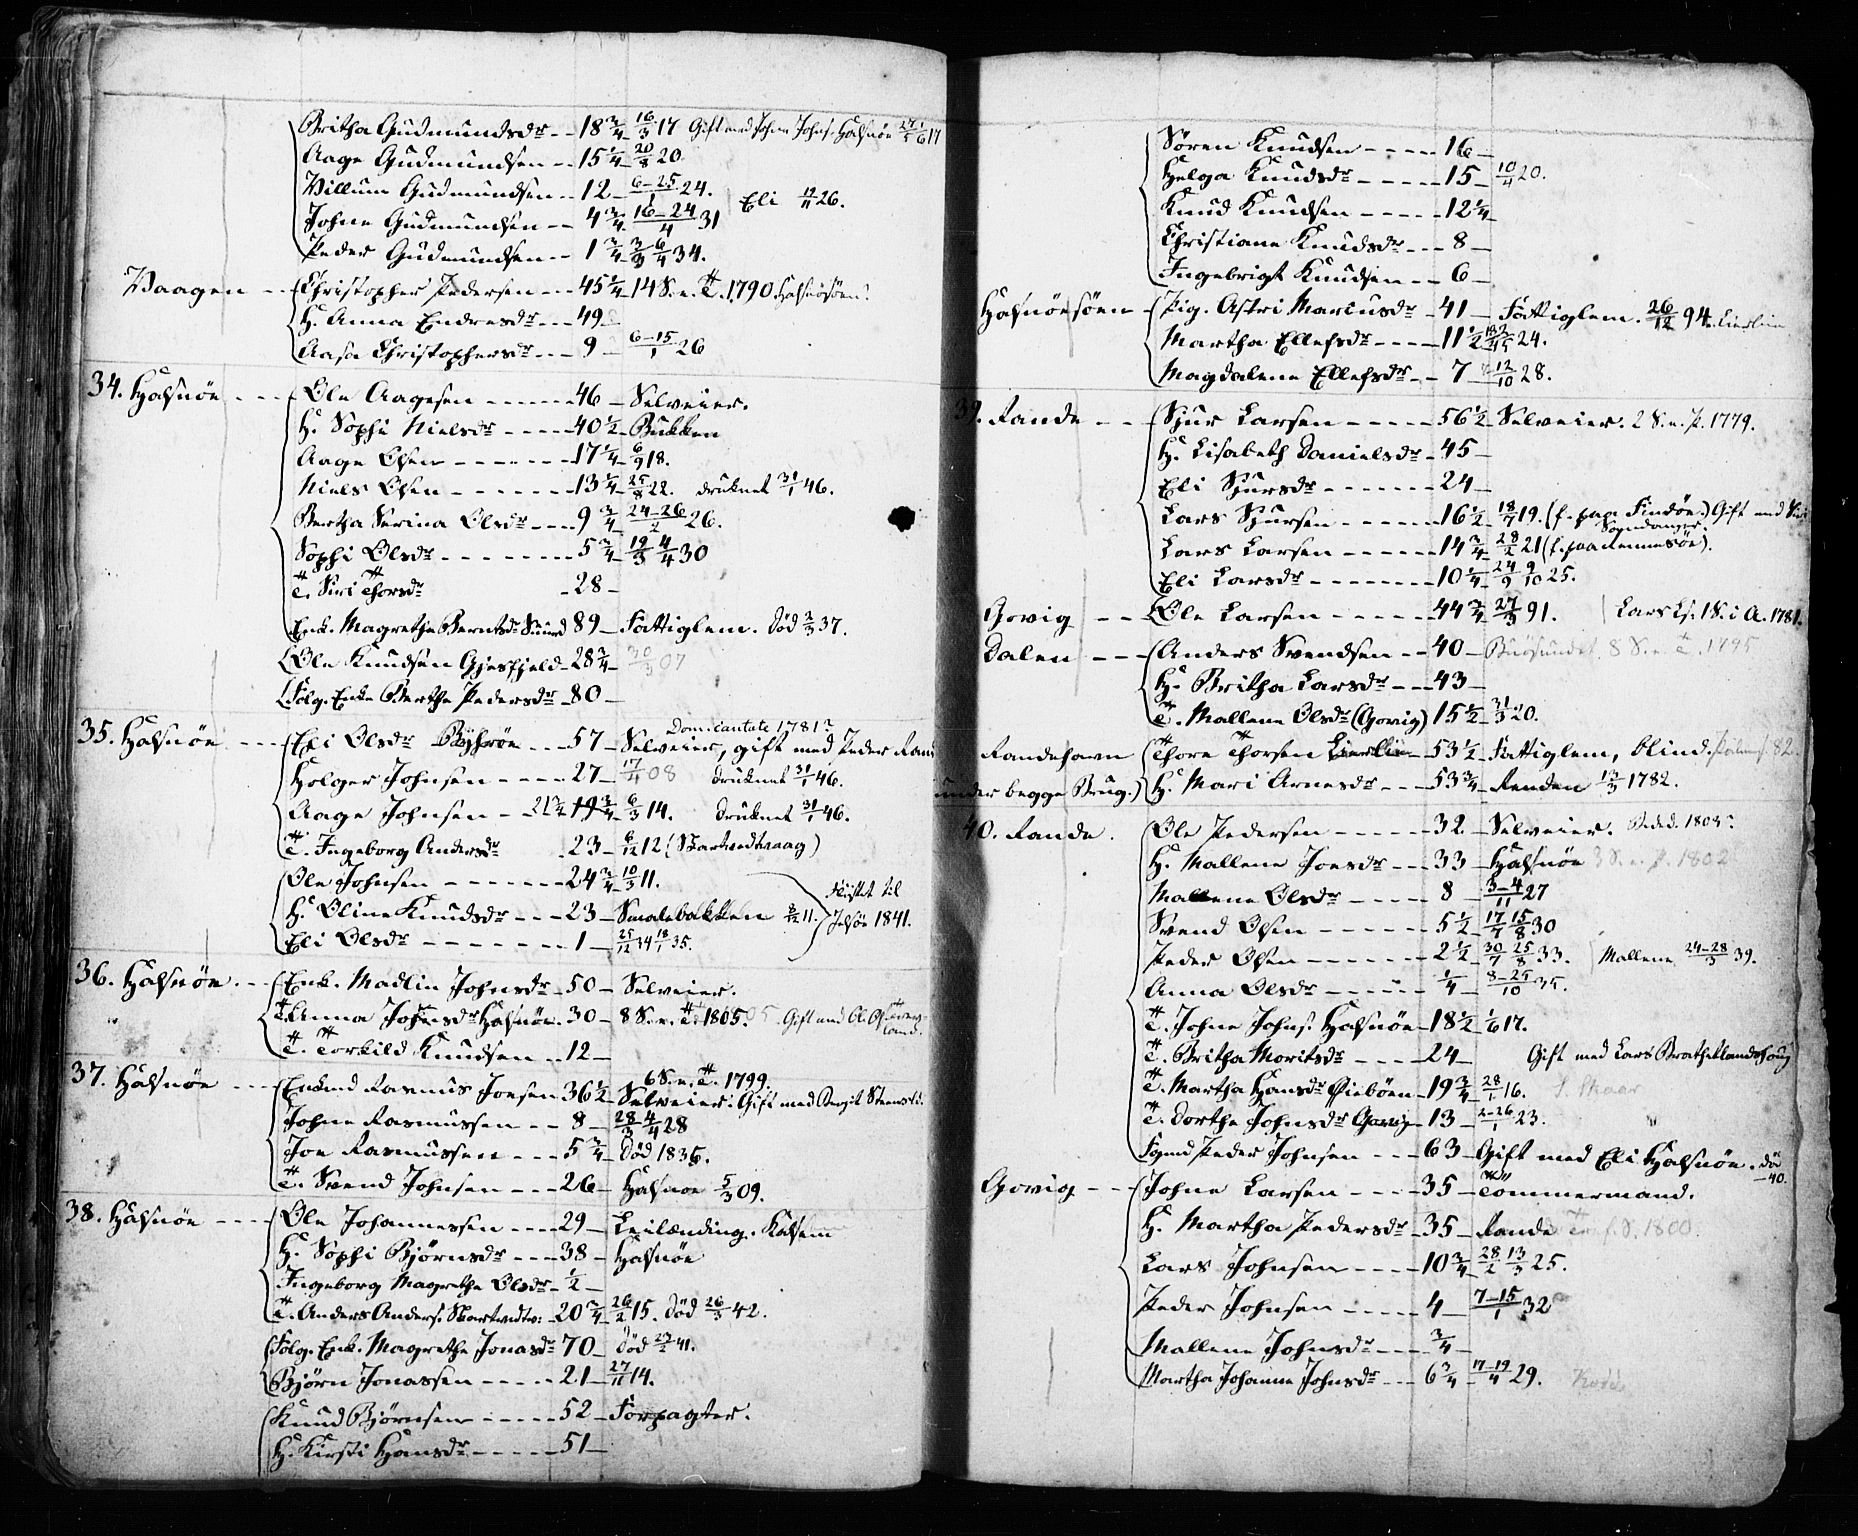 Britha Gudmundsdr -- 18 3/4 16/3 17 Gift med John Johns. Halsnøe
Aage Gudmundsen -- 15 1/4 20/8 20
Villum Gudmundsen -- 12 - 6-25/1 24. Eli 26.
Johne Gudmundsen -- 4 3/4 16-24/4 31
Peder Gudmundsen -- 1 3/4 3/3 6/4 34.
Vaagen -- Christopher Pedersen -- 45 1/4 14 S. e. T. 1790 Halsnøsøen.
H. Anna Endresdr -- 49
Aasa Christophersdr -- 9 - 6-15/1 26
34. Halsnøe --- Ole Aagesen --- 46 - Selveier.
H. Sophi Nielsdr --- 40 1/2 - Bukken
Aage Olsen --- 17 1/4 6/9 18.
Niels Olsen --- 13 1/4 25/8 22. druknet 31/1 46.
Bertha Serina Olsdr -- 9 3/4 24-26/2 26.
Sophi Olsdr --- 5 3/4 19/3 4/4 30
T. Siri Thorsdr - 28 -
Enk. Magrethe Berntsdr 89 - Fattiglem. Død 2/3 37.
Ole Knudsen Gjesfjeld - 28 3/4 - 30/3 07
Folg. Enke Berthe Pedersdr 80 -
35. Halsnøe --- Eli Olsdr Byhrøe --- 57 - Selveier, gift med Peder Rand
Dom. cantate 1781
Holger Johnsen --- 27 - 17/4 08 druknet 31/1 46.
Aage Johnsen - 21 3/4 19 3/4 6/3 14. Druknet 31/1 46.
T. Ingeborg Andersdr - 23 - 6/12 12 (Skartvedtvaag)
Ole Johnsen --- 24 3/4 10/3 11.
H. Oline Knudsdr --- 23 - Smalebakken 11. Flyttet til
Eli Olsdr --- 1 - 25/12 34 18/1 35. Jelsøe 1841.
36. Halsnøe -- Enk. Madlin Johnsdr - 50 - Selveier.
T. Anna Johnsdr Halsnøe. 30 - 8 S. e. T. 1805. Gift med Ol. Ols.
T. Torkild Knudsen -- 12 -
37. Halsnøe --- Enkmd Rasmus Joesen 36 1/2 6 S. e. T. 1799.
Selveier. Gift med Bergit
Johne Rasmussen -- 8 - 28/3 4/4 28
Joe Rasmussen --- 5 3/4 død 1836.
T. Svend Johnsen --- 26 - Halsnøe 5/3 09.
38. Halsnøe --- Ole Johannessen --- 29 - Leilænding.
H. Sophi Bjørnsdr --- 38 - Halsnøe
Ingeborg Magrethe Olsdr - 1/2 -
T. Anders Anders. Skartvedtv: 20 3/4 26/2 15. død 26/3 42.
Folg. Enk. Magrethe Jonasdr 70 - død 41.
Bjørn Jonassen --- 21 - 27/11 14.
Knud Bjørnsen --- 52 - Forpagter.
H. Kirsti Hansdr --- 51 -
Søren Knudsen --- 16 -
Helga Knudsdr --- 15 - 10/4 20.
Knud Knudsen --- 12 1/4
Christiane Knudsdr --- 8 -
Ingebrigt Knudsen -- 6 -
Halsnøesøen - Pig. Astri Marcusdr - 41 - Fattiglem. 26/12 94.
Martha Ellefsdr --- 11 1/2 24.
Magdalene Ellefsdr -- 7 12/10 28.
39. Rande -- Sjur Larsen --- 56 1/2 Selveier. 2 S. e. P. 1779.
H. Lisabeth Danielsdr - 45 -
Eli Sjursdr --- 24 -
Lars Sjursen --- 16 1/2 18/7 19. (f. paa Findøe.) Gift med
Lars Larsen --- 14 3/4 28/2 21 (f. paa Rennesøe).
Eli Larsdr --- 10 1/4 24/9 9/10 25.
Govig -- Ole Larsen --- 44 3/4 27/3 91. Lars L. 1 S. i A. 1781.
Dalen -- Anders Svendsen -- 40 - Buøsundet. 8 S. e. T. 1795
H. Britha Larsdr -- 43 -
T. Mallene Olsdr (Govig) 15 1/2 31/3 20.
Randehavn Thore Thorsen 53 1/2 Fattiglem, blind. 82.
(under begge Brug.) H. Mari Arnesdr --- 53 3/4 Renden 13/3 1782.
40. Rande. Ole Pedersen --- 32 - Selveier.
H. Mallene Joesdr --- 33 - Halsnøe 3 S. e. P. 1802
Mallene Olsdr --- 8 3-4/11 27
Svend Olsen --- 5 1/2 17/7 15/8 30
Peder Olsen --- 2 1/2 30/7 25/8 33. Mallene 24-28/3 39.
Anna Olsdr --- 1/4 8-25/10 35.
T. Johne Johns. Halsnøe - 18 1/2 1/6 17.
T. Britha Moritsdr --- 24 - Gift med Lars Brathetlandshoug
T. Martha Hansdr Øiebøen - 19 3/4 28/1 16.
T. Dorthe Johnsdr Govig - 13 - 2-26/1 23.
Fgmd Peder Johnsen --- 63 - Gift med Eli Halsnøe. død - 40.
Govig --- Johne Larsen --- 35 - Tømmermand.
H. Martha Pedersdr - 35 - Rande 1800.
Lars Johnsen --- 10 3/4 28/2 13/3 25.
Peder Johnsen --- 4 - 7-15/1 32
Mallene Johnsdr --- 3/4 -
Martha Johanne Johnsdr -- 6 3/4 17-19/4 29.